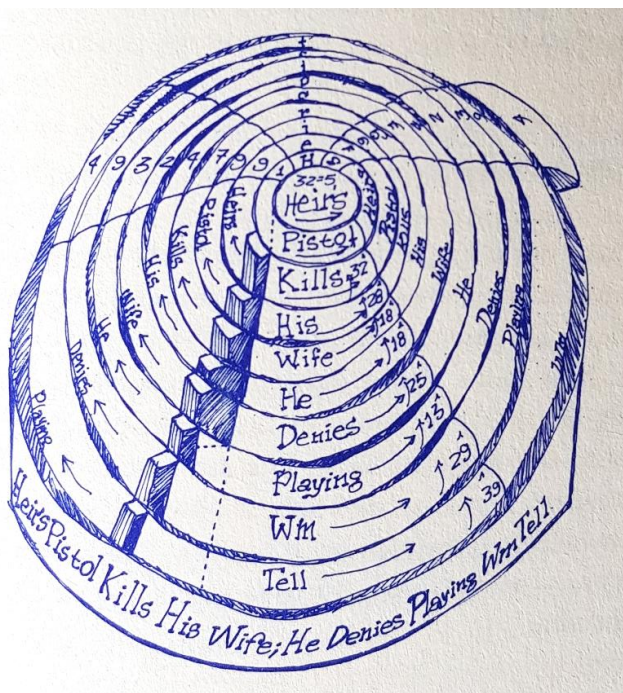 32=5,
Heirs
Pistol
Kills 32
His 28
Wife 18
He 18
Denies 25
Playing 13
Wm 29
Tell 39
4 9 3 2 4 7 9 9
Heirs
Pistol
Kills
His
Wife
He
Denies
Playing
Heirs
Pistol
Kills
His
Wife
He
Denies
Playing
Wm
HeirsPistol Kills His Wife; He Denies Playing Wm Tell.